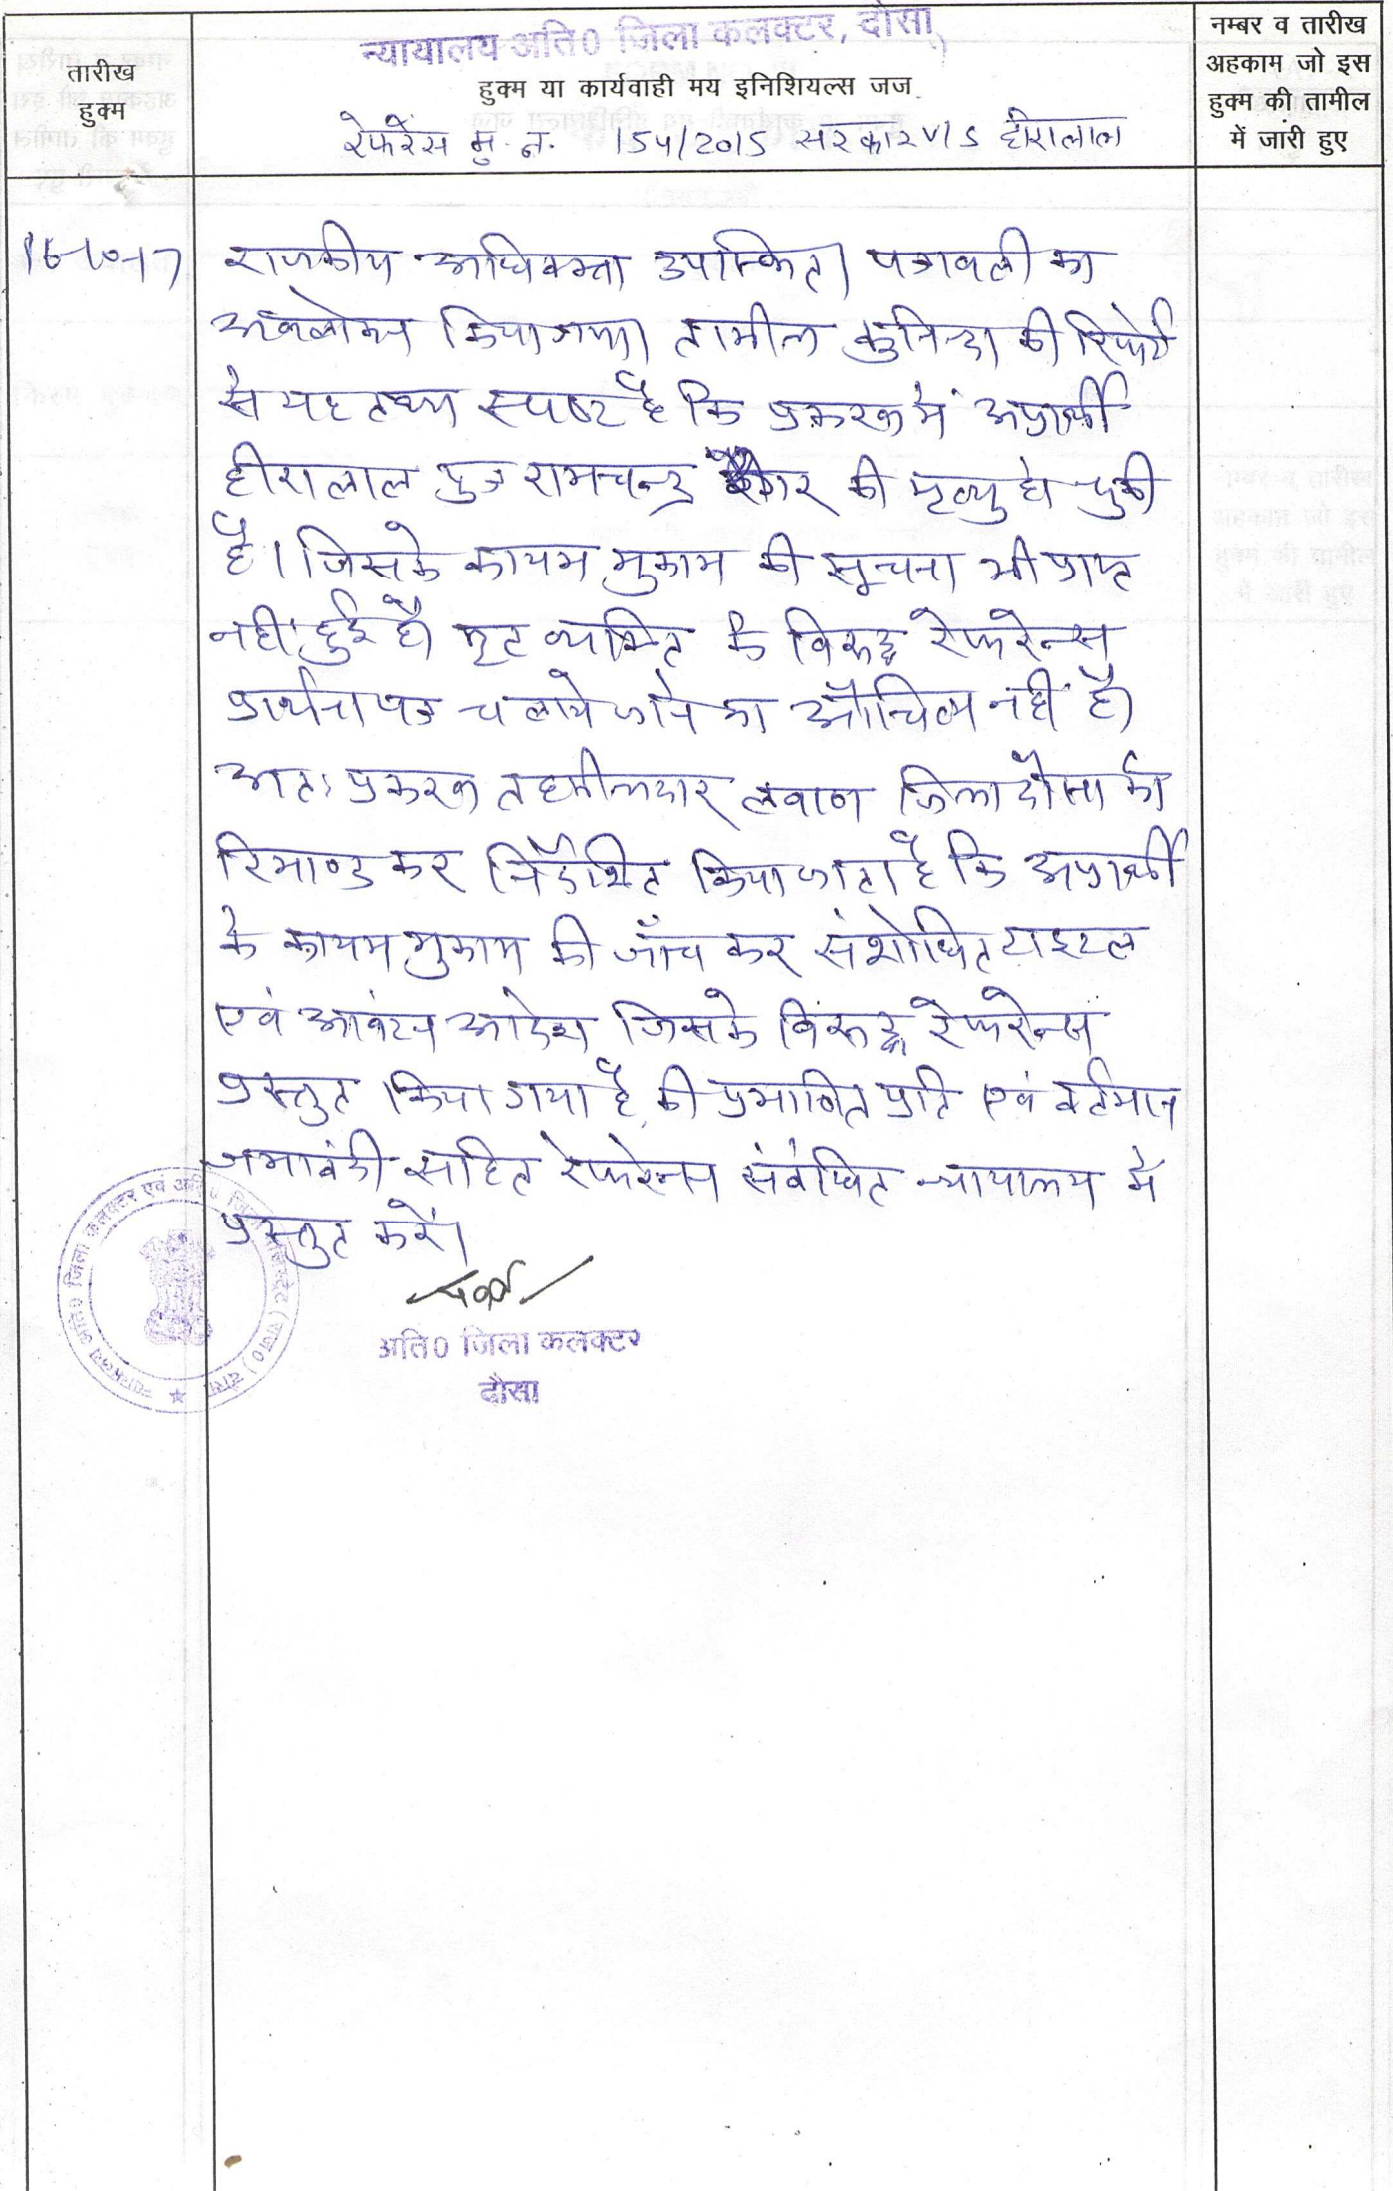 न्यायालय अति0 जिला कलक्टर, दौसा
तारीख
हुक्म
हुक्म या कार्यवाही मय इनिशियल्स जज
रेफरेंस मु. न. 154/2015 सरकार V/S हीरालाल
नम्बर व तारीख
अहकाम जो इस
हुक्म की तामील
में जारी हुए
राजकीय अधिवक्ता उपस्थित। पत्रावली का
अवलोकन किया गया। तामील कुनिन्दा की रिपोर्ट
से यह तथ्य स्पष्ट है कि प्रकरण में अप्रार्थी
हीरालाल पुत्र रामचन्द्र रैगर की मृत्यु हो चुकी
है। जिसके कायम मुकाम की सूचना भी प्राप्त
नहीं हुई है। मृत व्यक्ति के विरूद्ध रेफरेन्स
प्रार्थना पत्र चलाये जाने का औचित्य नहीं है।
अतः प्रकरण तहसीलदार लवाण जिला दौसा को
रिमाण्ड कर निर्देशित किया जाता है कि अप्रार्थी
के कायम मुकाम की जाँच कर संशोधित टाइटल
एवं आवंटन आदेश जिसके विरूद्ध रेफरेन्स
प्रस्तुत किया गया है, की प्रमाणित प्रति एवं वर्तमान
जमाबंदी सहित रेफरेन्स संबंधित न्यायालय में
प्रस्तुत करें।
अति0 जिला कलक्टर
दौसा